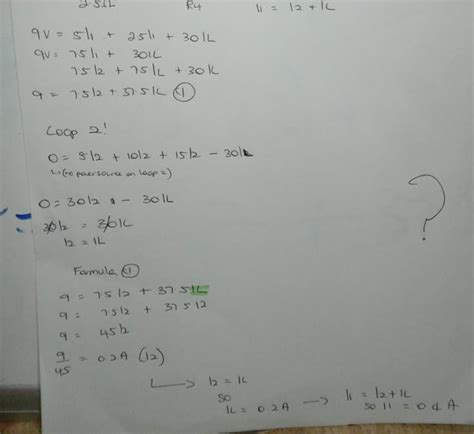 2.5IL R4 I1 = I2 + IL
9V = 5I1 + 25I1 + 30IL
9V = 75I1 + 30IL
75I2 + 75IL + 30IL
9 = 75I2 + 37.5IL ①
Loop 2!
0 = 5I2 + 10I2 + 15I2 - 30IL
↳ (no power source on loop 2)
0 = 30I2 - 30IL
30I2 = 30IL
I2 = IL
Formula ①
9 = 75I2 + 37 5IL
9 = 75I2 + 37 5I2
9 = 45I2
9/45 = 0 2A (I2)
↳ I2 = IL
so
IL = 0 2A → I1 = I2 + IL
so I1 = 0 4A
?